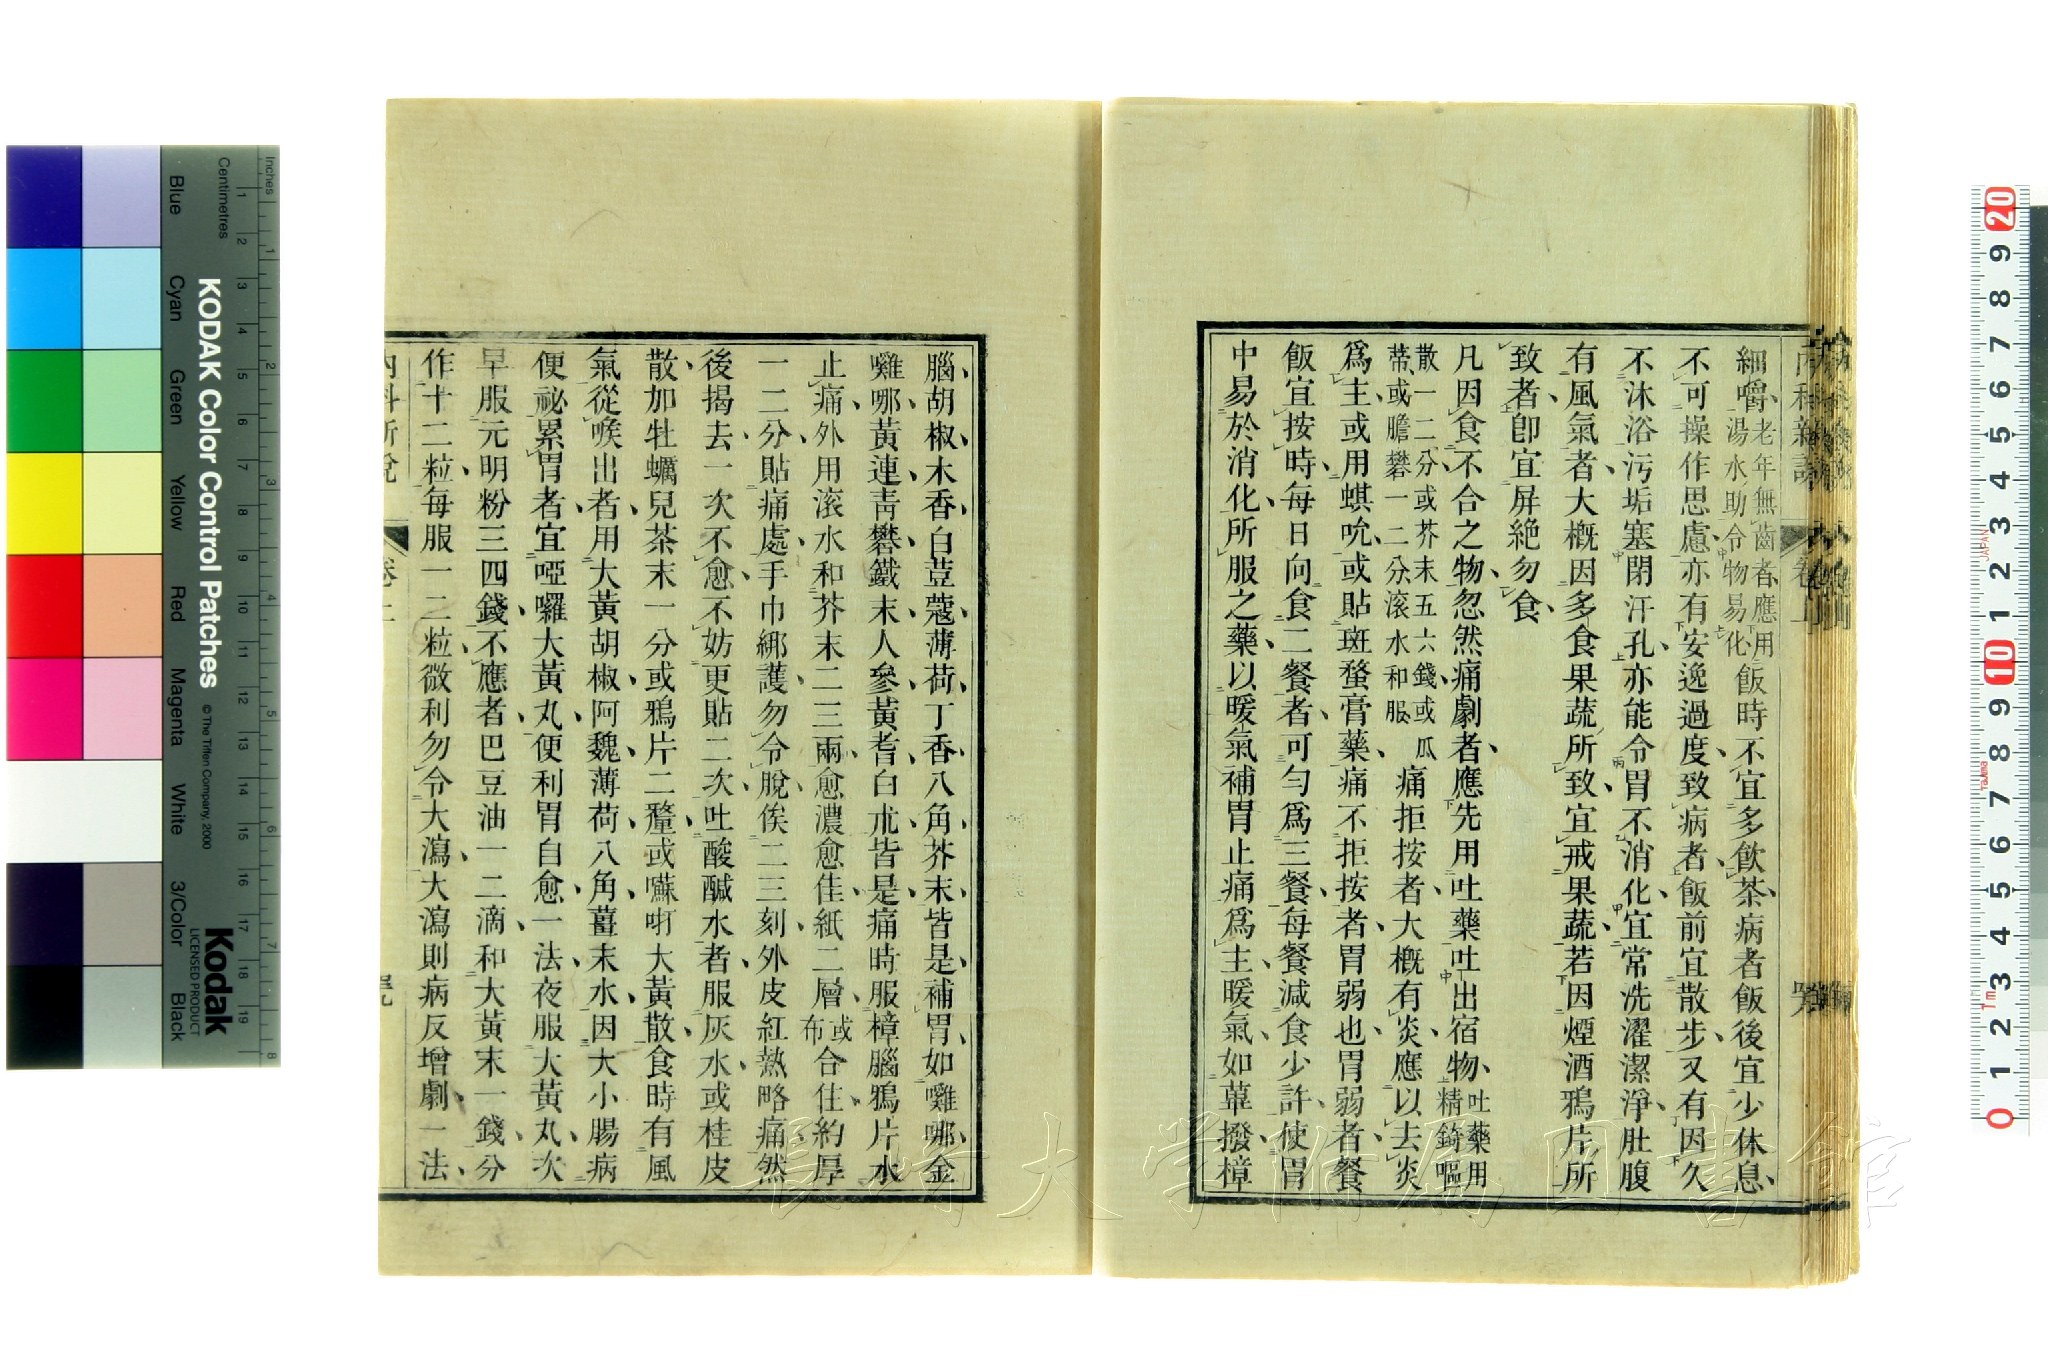 細嚼老年無齒者應用湯水助令物易化飯時不宜多飲茶病者飯後宜少休息
不可操作思慮亦有安逸過度致病者飯前宜散步又有因久
不沐浴污垢塞閉汗孔亦能令胃不消化宜常洗濯潔淨肚腹
有風氣者大概因多食果蔬所致宜戒果蔬若因煙酒鴉片所
致者卽宜屏絶勿食
凡因食不合之物忽然痛劇者應先用吐藥吐出宿物吐藥用精錡嘔
散一二分或芥末五六錢或瓜蒂或膽礬一二分滚水和服痛拒按者大概有炎應以去炎
爲主或用蜞吮或貼斑蝥膏藥痛不拒按者胃弱也胃弱者餐
飯宜按時每日向食二餐者可勻爲三餐每餐減食少許使胃
中易於消化所服之藥以暖氣補胃止痛爲主暖氣如蓽撥樟
腦胡椒木香白荳蔻薄荷丁香八角芥末皆是補胃如囄哪金
囄哪黃連靑礬鐵末人參黃耆白朮皆是痛時服樟腦鴉片水
止痛外用滚水和芥末二三兩愈濃愈佳紙二層或布合住約厚
一二分貼痛處手巾綁護勿令脫俟二三刻外皮紅熱略痛然
後揭去一次不愈不妨更貼二次吐酸鹹水者服灰水或桂皮
散加牡蠣兒茶末一分或鴉片二釐或囌啊大黃散食時有風
氣從喉出者用大黃胡椒阿魏薄荷八角薑末水因大小腸病
便祕累胃者宜啞囉大黃丸便利胃自愈一法夜服大黃丸次
早服元明粉三四錢不應者巴豆油一二滴和大黃末一錢分
作十二粒每服一二粒微利勿令大瀉大瀉則病反增劇一法
內科新說
卷上
KODAK Color Control Patches
© The Tiffen Company, 2000
Kodak
LICENSED PRODUCT
Inches
Centimetres
Blue
Cyan
Green
Yellow
Red
Magenta
White
3/Color
Black
長崎大学附属図書館